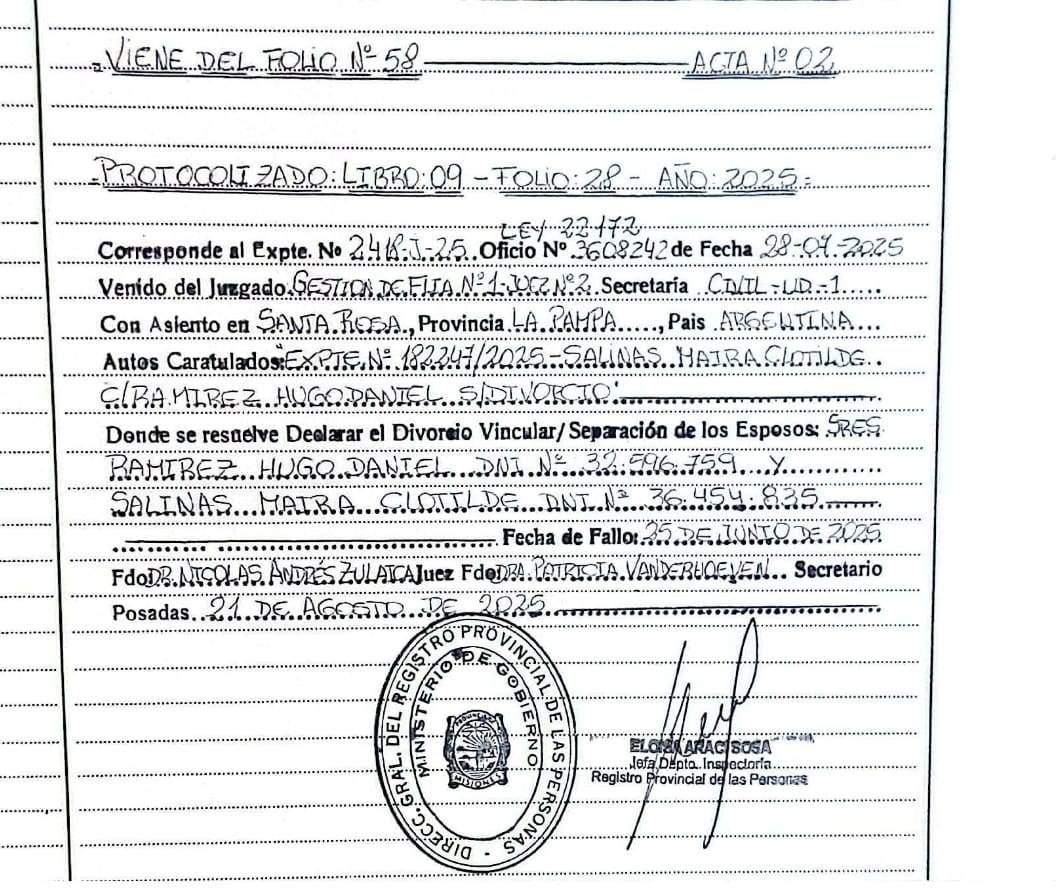 VIENE DEL FOLIO Nº 58 ACTA Nº 02
PROTOCOLIZADO: LIBRO: 09 - FOLIO: 28 - AÑO: 2025
LEY 22172
Corresponde al Expte. No 2418-J-25. Oficio Nº 3608242 de Fecha 28-07-2025
Venido del Juzgado GESTION DE FLIA Nº 1-JUEZ Nº 2. Secretaría CIVIL-UD.-1
Con Asiento en SANTA ROSA, Provincia LA PAMPA, Pais ARGENTINA
Autos Caratulados: "EXPTE. Nº 182247/2025-SALINAS MAIRA CLOTILDE
C/RAMIREZ HUGO DANIEL S/DIVORCIO"
Donde se resuelve Declarar el Divorcio Vincular/ Separación de los Esposos: SRES.
RAMIREZ HUGO DANIEL DNI Nº 32.596.759 Y
SALINAS MAIRA CLOTILDE DNI Nº 36.454.835
Fecha de Fallo: 25 DE JUNIO DE 2025
Fdo DR. NICOLAS ANDRÉS ZULAICA Juez Fdo DRA. PATRICIA VANDERHOEVEN Secretario
Posadas 21 DE AGOSTO DE 2025
DIRECC. GRAL. DEL REGISTRO PROVINCIAL DE LAS PERSONAS
MINISTERIO DE GOBIERNO
MISIONES
ARACI SOSA
Jefa Dpto. Inspectoría
Registro Provincial de las Personas